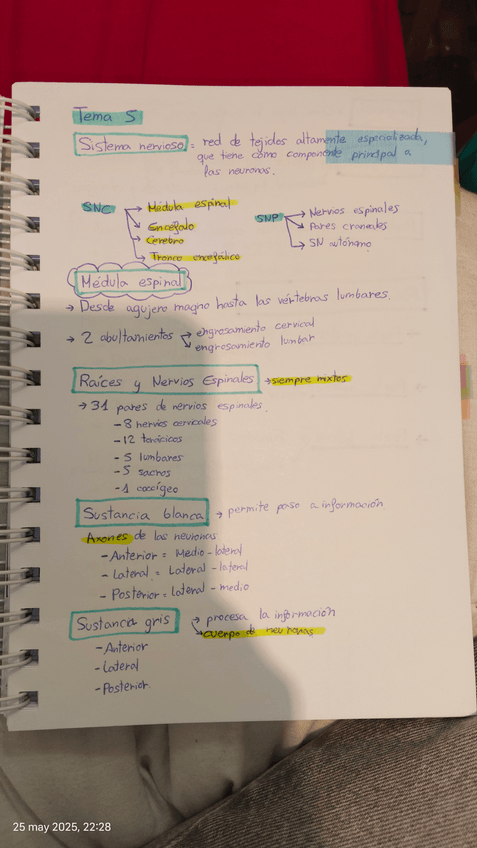 Tema 5
Sistema nervioso = red de tejidos altamente especializada,
que tiene como componente principal a
las neuronas.
SNC → Médula espinal
→ Encéfalo
→ Cerebro
→ Tronco encefálico
SNP → Nervios espinales
→ Pares craneales
→ SN autónomo
Médula espinal
→ Desde agujero magno hasta las vértebras lumbares.
→ 2 abultamientos → engrosamiento cervical
→ engrosamiento lumbar
Raíces y Nervios Espinales → siempre mixtos
→ 31 pares de nervios espinales.
- 8 nervios cervicales
- 12 torácicos
- 5 lumbares
- 5 sacros
- 1 coccígeo
Sustancia blanca → permite paso a información
Axones de las neuronas
- Anterior = Medio-lateral
- Lateral = Lateral-lateral
- Posterior = Lateral-medio
Sustancia gris → procesa la información
→ cuerpo de neuronas
- Anterior
- Lateral
- Posterior.
25 may 2025, 22:28